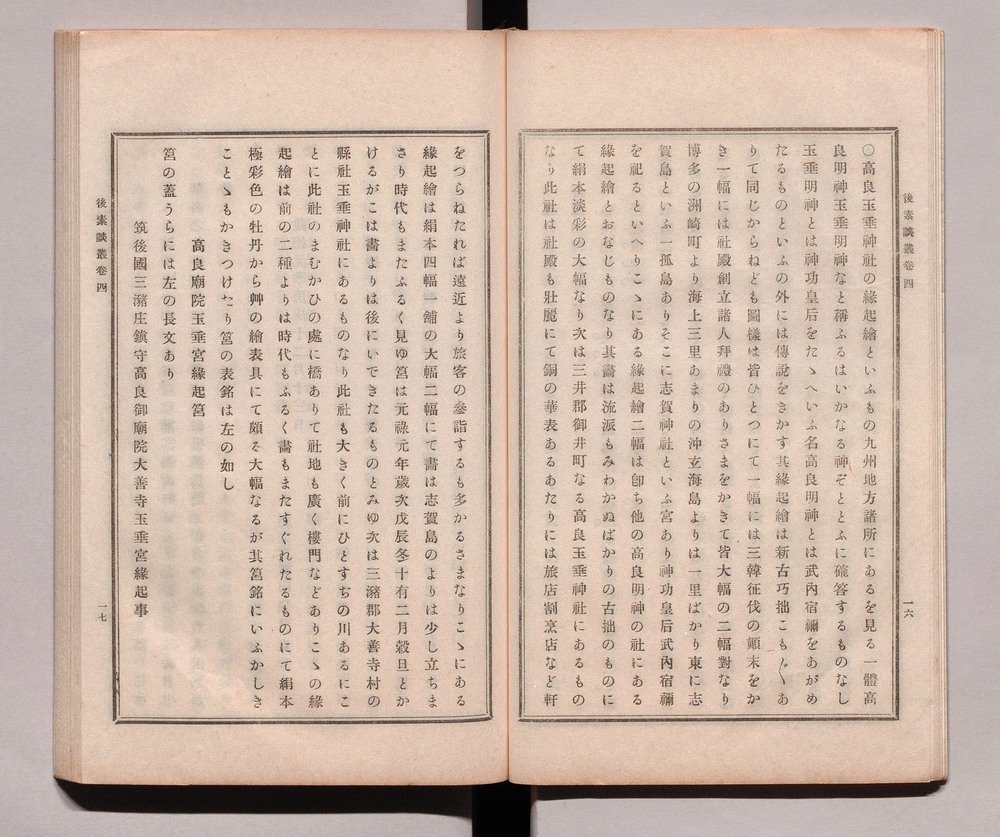 後素談叢卷四
一六
〇高良玉垂神社の緣起繪といふもの九州地方諸所にあるを見る一體高
良明神玉垂明神なと稱ふるはいかなる神ぞととふに確答するものなし
玉垂明神とは神功皇后をたゝへいふ名高良明神とは武內宿禰をあがめ
たるものといふの外には傳說をきかす其緣起繪は新古巧拙こも〲あ
りて同じからねども圖樣は皆ひとつにて一幅には三韓征伐の顚末をか
き一幅には社殿創立諸人拜禮のありさまをかきて皆大幅の二幅對なり
博多の洲崎町より海上三里あまりの沖玄海島よりは一里ばかり東に志
賀島といふ一孤島ありそこに志賀神社といふ宮あり神功皇后武內宿禰
を祀るといへりこゝにある緣起繪二幅は卽ち他の高良明神の社にある
緣起繪とおなじものなり其畵は流派もみわかぬばかりの古拙のものに
て絹本淡彩の大幅なり次は三井郡御井町なる高良玉垂神社にあるもの
なり此社は社殿も壯麗にて銅の華表あるあたりには旅店割烹店など軒
をつらねたれば遠近より旅客の參詣するも多かるさまなりこゝにある
緣起繪は絹本四幅一舖の大幅二幅にて書は志賀島のよりは少し立ちま
さり時代もまたふるく見ゆ筥は元祿元年歲次戊辰冬十有二月穀旦とか
けるがこは畵よりは後にいできたるものとみゆ次は三瀦郡大善寺村の
縣社玉垂神社にあるものなり此社も大きく前にひとすぢの川あるにこ
とに此社のまむかひの處に橋ありて社地も廣く樓門などありこゝの緣
起繪は前の二種よりは時代もふるく畵もまたすぐれたるものにて絹本
極彩色の牡丹から艸の繪表具にて頗る大幅なるが其筥銘にいふかしき
ことゝもかきつけたり筥の表銘は左の如し
高良廟院玉垂宮緣起筥
筥の蓋うらには左の長文あり
筑後國三瀦庄鎭守高良御廟院大善寺玉垂宮緣起事
後素談叢卷四
一七